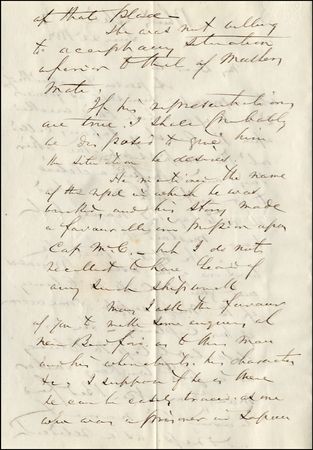 of that place —
He was not willing
to accept any situation
inferior to that of Masters
Mate,
If his representations
are true, I shall probably
be disposed to give him
the situation he desires.
He mentioned the name
of the in which he was
and his story made
a favourable impression upon
Cap McC. — but I do not
recollect to have heard of
any such shipwreck
May I ask the favour
of you to make some enquiry at
New Bedford as to this man
and his whereabouts, his character
&c, I suppose if he is there
he can be easily traced as one
who was a prisoner in Japan